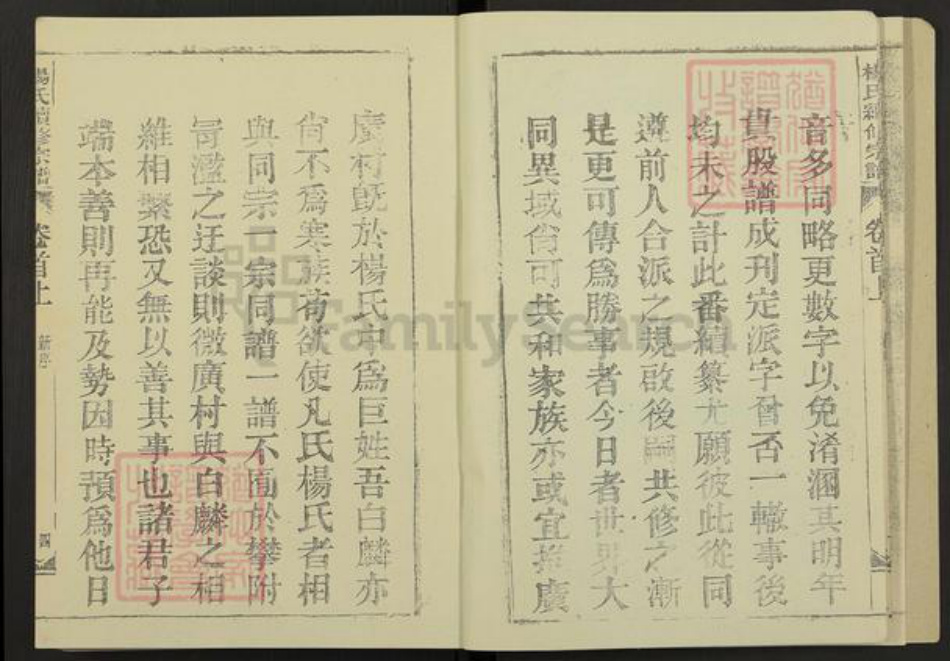 楊氏續修宗譜 卷首上
音多同略更數字以免淆溷其明年
貴股譜成刊定派字曾否一轍事後
均未之計此番續纂尤願彼此從同
遵前人合派之規啟後嗣共修之漸
是更可傳為勝事者今日者世界大
同異域尚可共和家族亦或宜推廣
廣村既於楊氏中為巨姓吾白麟亦
尚不為寒族苟欲使凡氏楊氏者相
與同宗一宗同譜一譜不囿於攀附
冐濫之迂談則微廣村與白麟之相
維相繫恐又無以善其事也諸君子
端本善則再能及勢因時預為他日
楊氏續修宗譜 卷首上 新序 四
FamilySearch